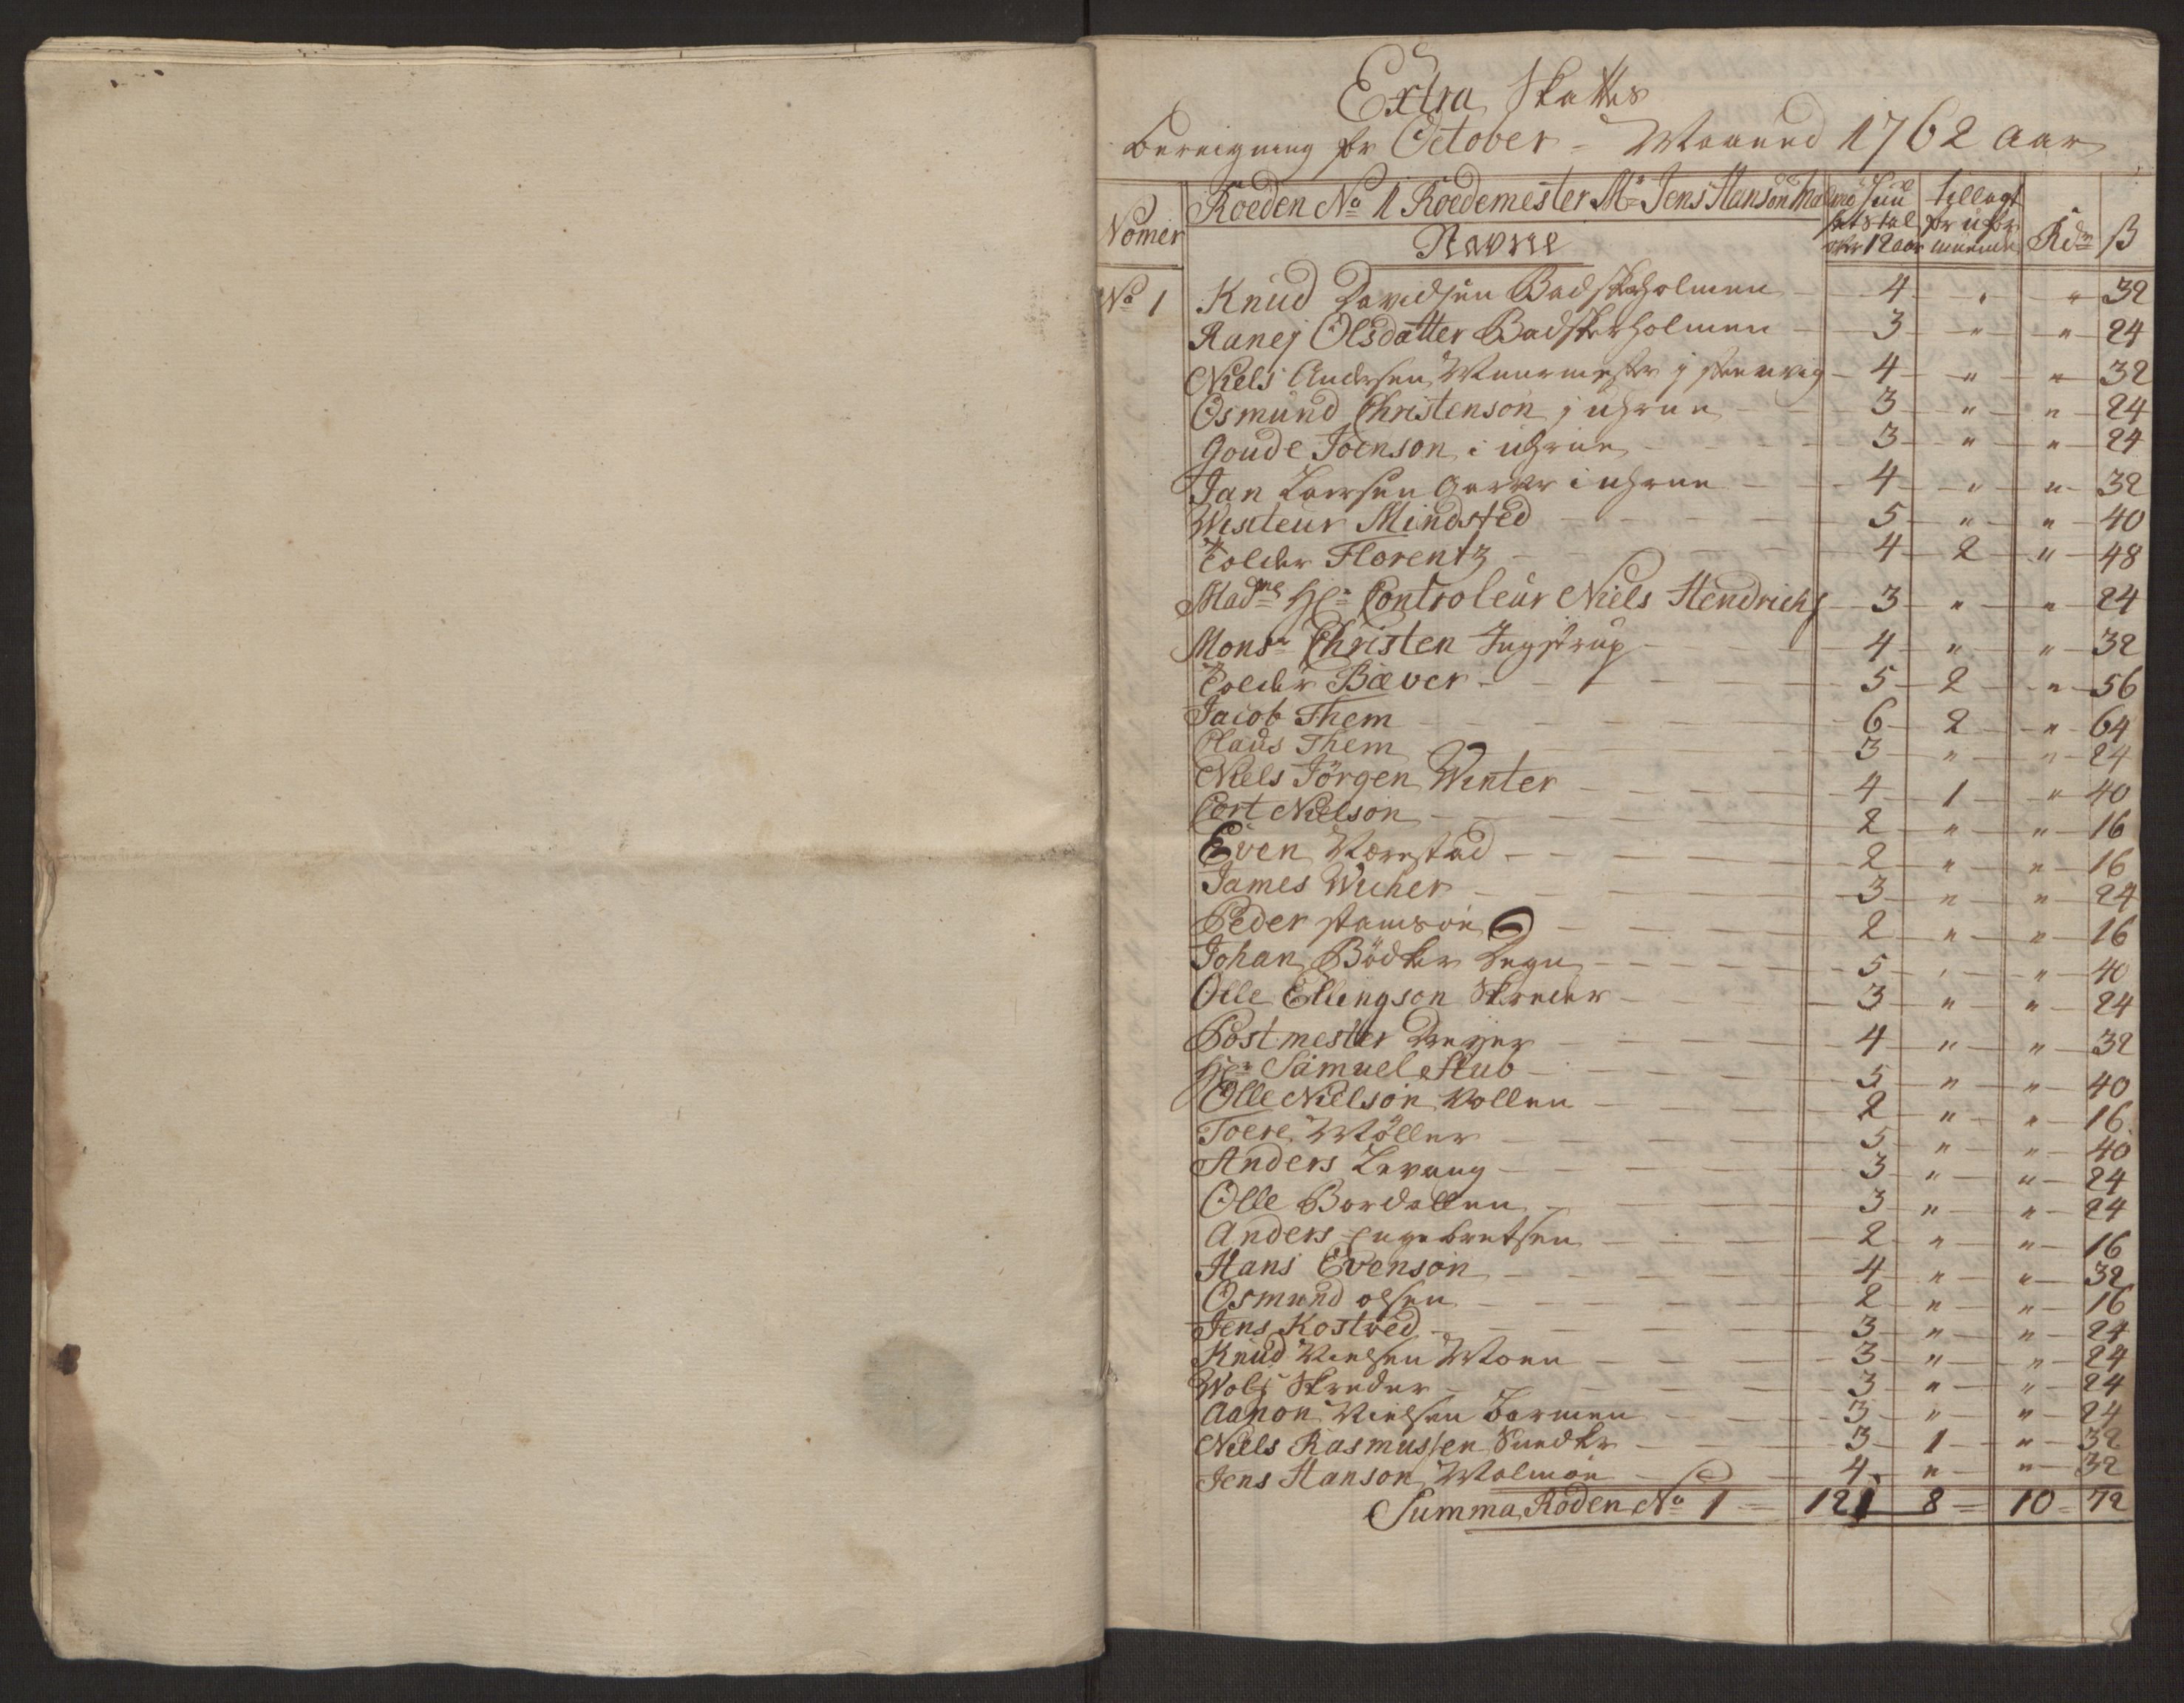 Extra Skattes
Bereigning for October - Maaned 1762 Aar
Nomer
Roeden No 1 Roedemester Mr Jens Hanson
Navne
over 12 aar
tillagt for
Rdr
ß
No 1 Knud Davidsen Badskerholmen 4 " " 32
Ranej Olsdatter Badskerholmen 3 " " 24
Niels Andersen Muurmester j 4 " " 32
Osmund Christenson j 3 " " 24
Goude Joenson i 3 " " 24
Jan Larsen i 4 " " 32
Visiteur Mindsted 5 " " 40
Tolder Florentz 4 2 " 48
Madme Hr Controleur Niels Hendrichs 3 " " 24
Monsr Christen Ingstrup 4 " " 32
Tolder Bæver 5 2 " 56
Jacob Them 6 2 " 64
Claus Them 3 " " 24
Niels Jörgen Winter 4 1 " 40
Cort Nielson 2 " " 16
Even 2 " " 16
James Wicher 3 " " 24
Peder 2 " " 16
Johan Bödker Degn 5 " " 40
Olle Ellingson Skreder 3 " " 24
Postmester Dreyer 4 " " 32
Hr Samuel Stub 5 " " 40
Olle Nielson Vollen 2 " " 16
Toere Möller 5 " " 40
Anders Levang 3 " " 24
Olle Bordallen 3 " " 24
Anders Engebretsen 2 " " 16
Hans Evenson 4 " " 32
Osmund olsen 2 " " 16
Jens Kostved 3 " " 24
Knud Nielsen Moen 3 " " 24
Wolf Skreder 3 " " 24
Aanon Nielsen 3 " " 24
Niels Rasmussen Snedker 3 1 " 32
Jens Hanson Malmöe 4 " " 32
Summa Roden No 1 = 121 8 = 10 = 72